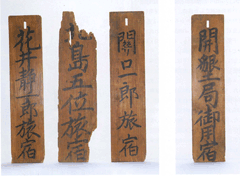 開墾局御用宿
關口一郎旅宿
島五位旅宿
花井静一郎旅宿